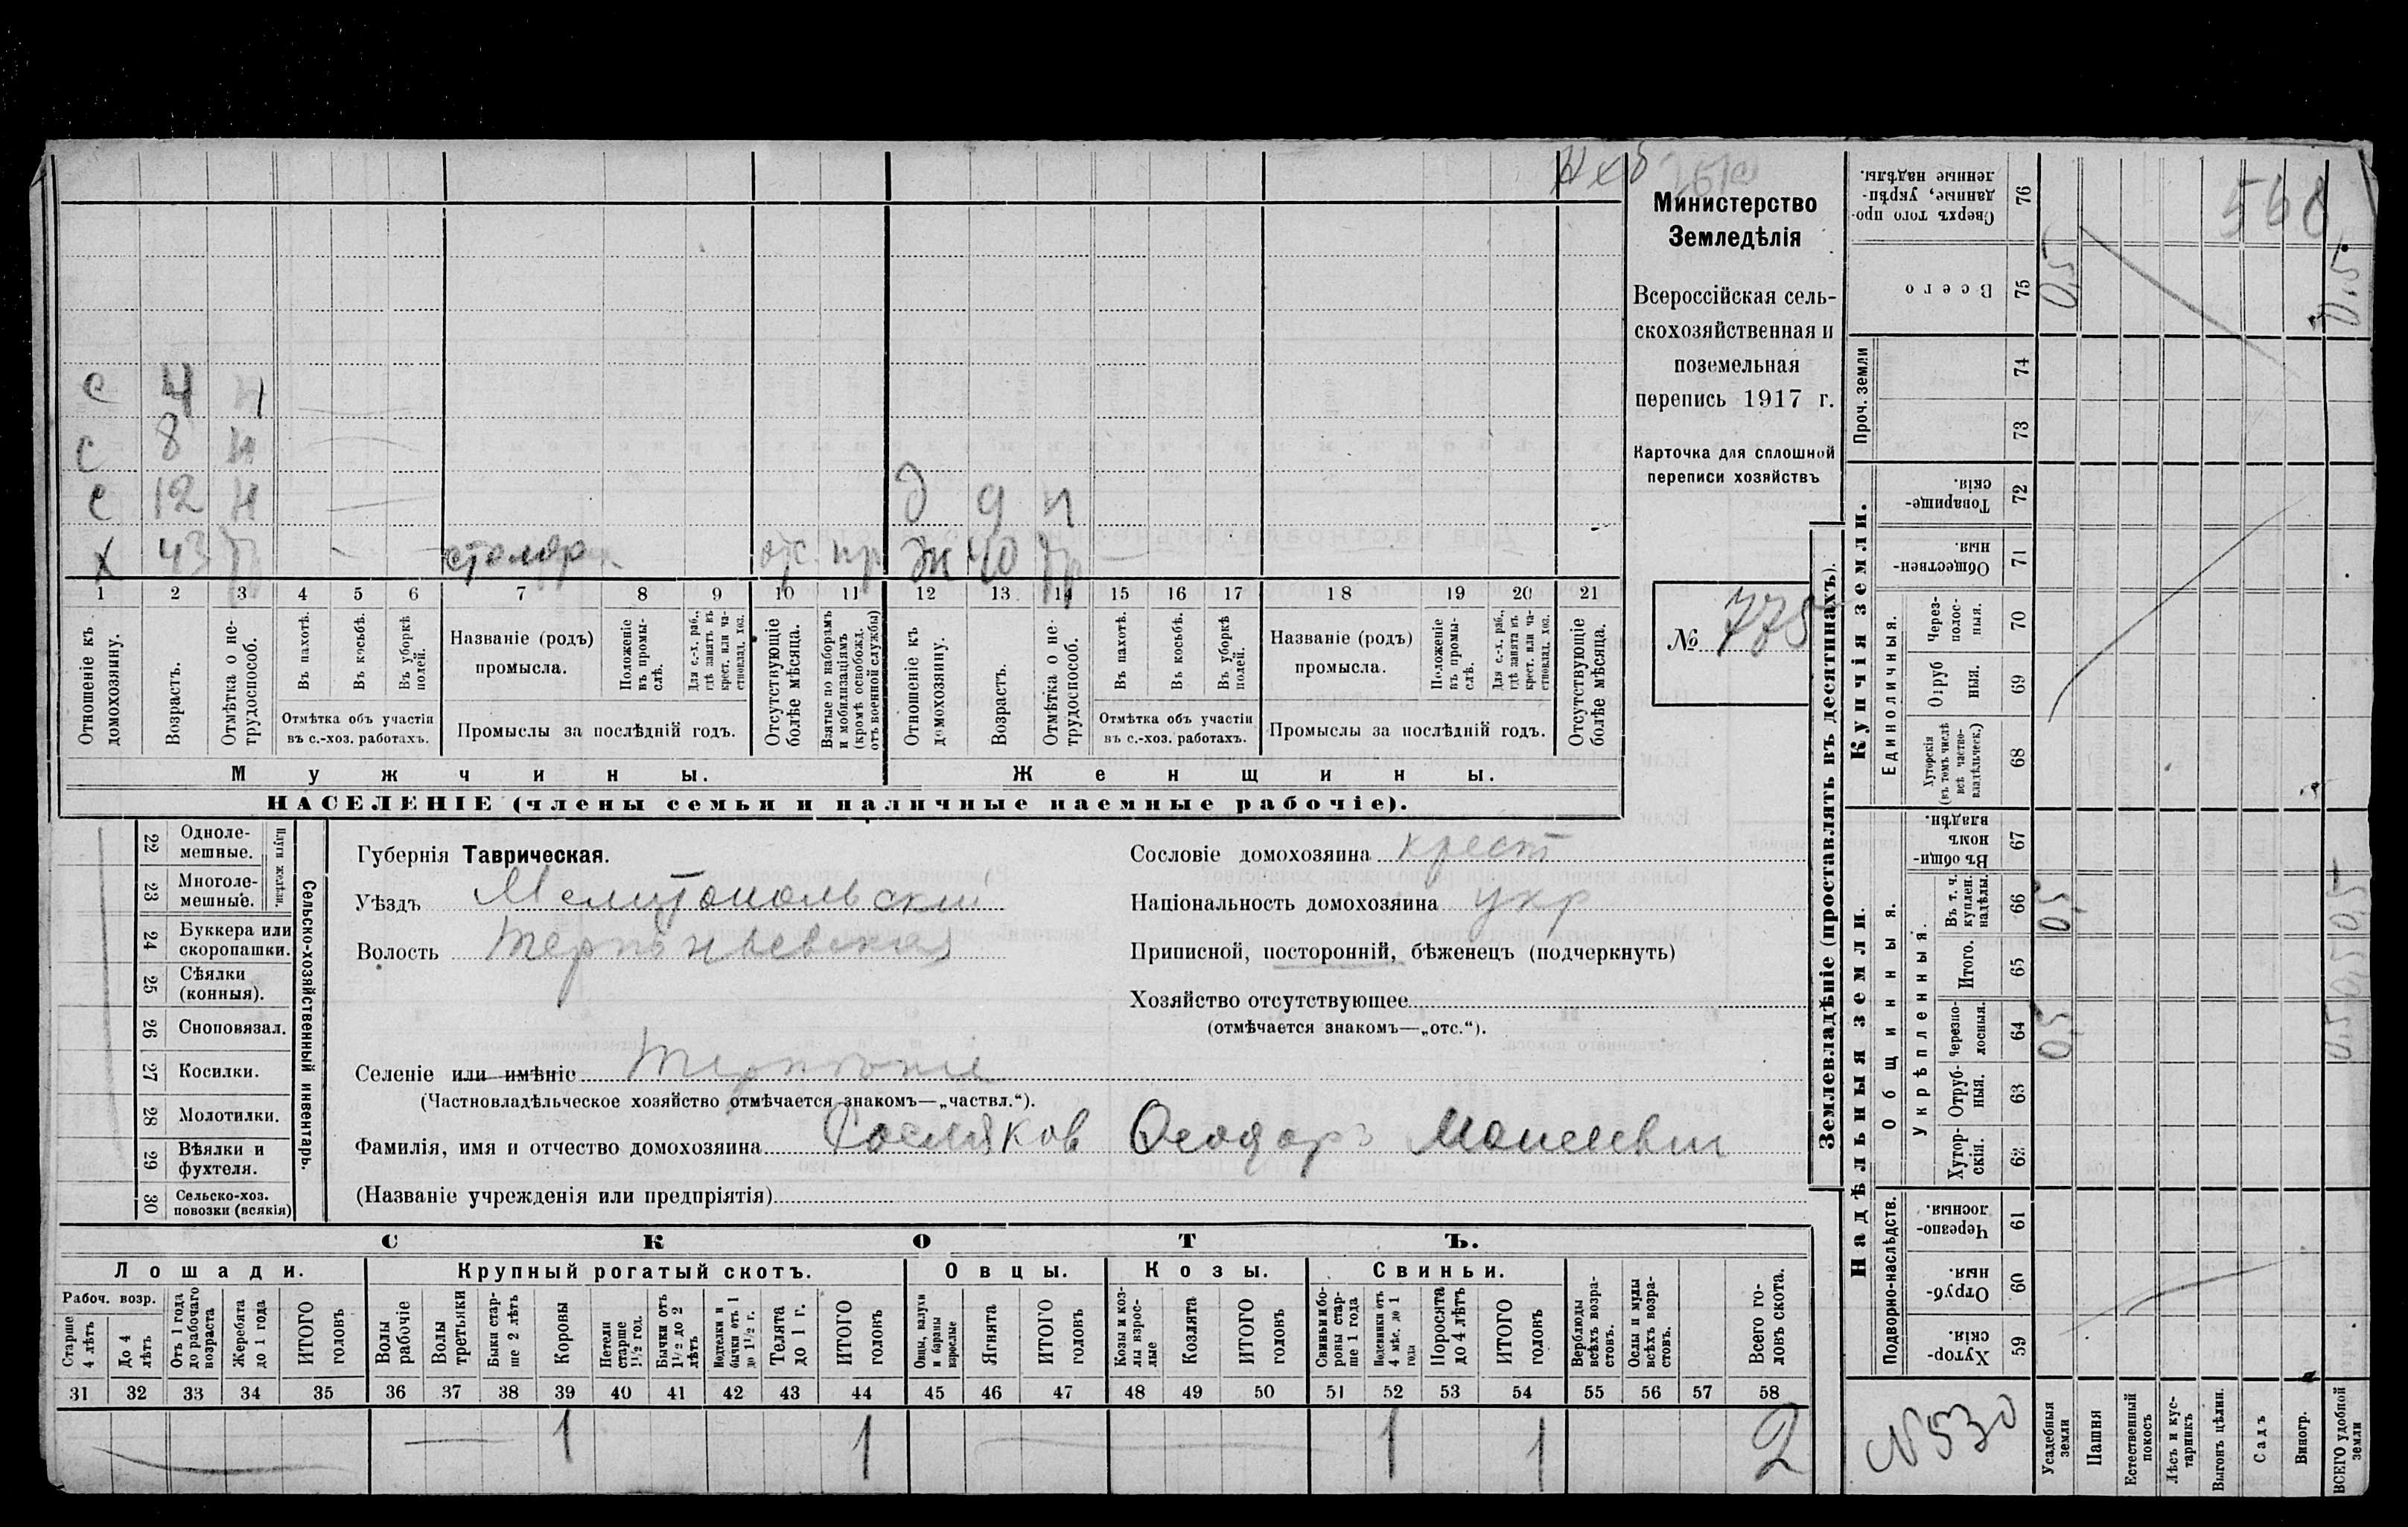 Министерство
Земледѣлія
Всероссійская сель-
скохозяйственная и
поземельная
перепись 1917 г.
Карточка для сплошной
переписи хозяйствъ
№ 775
с 4 н
с 8 н
с 12 н д 9 н
х 43 тр столяр отс. пр ж 40 тр
1 2 3 4 5 6 7 8 9 10 11 12 13 14 15 16 17 18 19 20 21
Отношеніе къ домохозяину.
Возрастъ.
Отмѣтка о не-трудоспособ.
Въ пахотѣ.
Въ косьбѣ.
Въ уборкѣ полей.
Отмѣтка объ участіи въ с.-хоз. работахъ.
Названіе (родъ) промысла.
Положеніе въ промы-слѣ.
Для с.-х. раб., гдѣ занятъ въ крест. или ча-стновлад. хоз.
Промыслы за послѣдній годъ.
Отсутствующіе болѣе мѣсяца.
Взятые по наборамъ и мобилизаціямъ (кромѣ освобожд. отъ военной службы)
Отношеніе къ домохозяину.
Возрастъ.
Отмѣтка о не-трудоспособ.
Въ пахотѣ.
Въ косьбѣ.
Въ уборкѣ полей.
Отмѣтка объ участіи въ с.-хоз. работахъ.
Названіе (родъ) промысла.
Положеніе въ промы-слѣ.
Для с.-х. раб., гдѣ занята въ крест. или ча-стновлад. хоз.
Промыслы за послѣдній годъ.
Отсутствующіе болѣе мѣсяца.
Мужчины. Женщины.
НАСЕЛЕНІЕ (члены семьи и наличные наемные рабочіе).
22 Одноле-мешные.
23 Многоле-мешные.
Плуги желѣзн.
24 Буккера или скоропашки.
25 Сѣялки (конныя).
26 Сноповязал.
27 Косилки.
28 Молотилки.
29 Вѣялки и фухтеля.
30 Сельско-хоз. повозки (всякія)
Сельско-хозяйственный инвентарь.
Губернія Таврическая.
Уѣздъ Мелитопольский
Волость Терпеньевская
Селеніе или имѣніе Терпение
(Частновладѣльческое хозяйство отмѣчается знакомъ—„частвл.“).
Фамилія, имя и отчество домохозяина Ѳеодоръ Моисеевич
(Названіе учрежденія или предпріятія)
Сословіе домохозяина крест
Національность домохозяина укр
Приписной, посторонній, бѣженецъ (подчеркнуть)
Хозяйство отсутствующее
(отмѣчается знакомъ—„отс.“).
СКОТЪ.
Лошади. Крупный рогатый скотъ. Овцы. Козы. Свиньи.
Рабоч. возр.
Старше 4 лѣтъ
До 4 лѣтъ
Отъ 1 года до рабочаго возраста
Жеребята до 1 года
ИТОГО головъ
Волы рабочіе
Волы третьяки
Быки стар-ше 2 лѣтъ
Коровы
Нетели старше 1½ год.
Бычки отъ 1½ до 2 лѣтъ
Подтелки и бычки отъ 1 до 1½ г.
Телята до 1 г.
ИТОГО головъ
Овцы, валухи и бараны взрослые
Ягнята
ИТОГО головъ
Козы и коз-лы взрос-лые
Козлята
ИТОГО головъ
Свиньи и бо-ровы стар-ше 1 года
Подсвинки отъ 4 мѣс. до 1 года
Поросята до 4 лѣтъ
ИТОГО головъ
Верблюды всѣхъ возра-стовъ.
Ослы и мулы всѣхъ возра-стовъ.
Всего го-ловъ скота.
31 32 33 34 35 36 37 38 39 40 41 42 43 44 45 46 47 48 49 50 51 52 53 54 55 56 57 58
1 1 1 1 2
Землевладѣніе (проставлять въ десятинахъ).
Сверхъ того про-данные, укрѣп-ленные надѣлы. 76
Всего 75 0,5 0,5
Проч. земли 74 73
Купчія земли.
Товарище-скія. 72
Обществен-ныя. 71
Единоличныя.
Через-полос-ныя. 70
Отруб ныя. 69
Хуторскія (въ томъ числѣ всѣ частно-владѣльческ.) 68
Надѣльныя земли.
Общинныя.
Въ общи-номъ владѣн. 67
Укрѣпленныя.
Въ т. ч. куплен. надѣлы. 66 0,5 0,5
Итого. 65 0,5
Черезпо-лосныя. 64 0,5 0,5
Отруб-ныя. 63
Хутор-скія. 62
Подворно-наслѣдств.
Черезпо-лосныя. 61
Отруб-ныя. 60
Хутор-скія. 59
N 530
Усадебныя земли
Пашня
Естественный покосъ
Лѣсъ и кус-тарникъ
Выгонъ цѣлин.
Садъ
Виногр.
ВСЕГО удобной земли